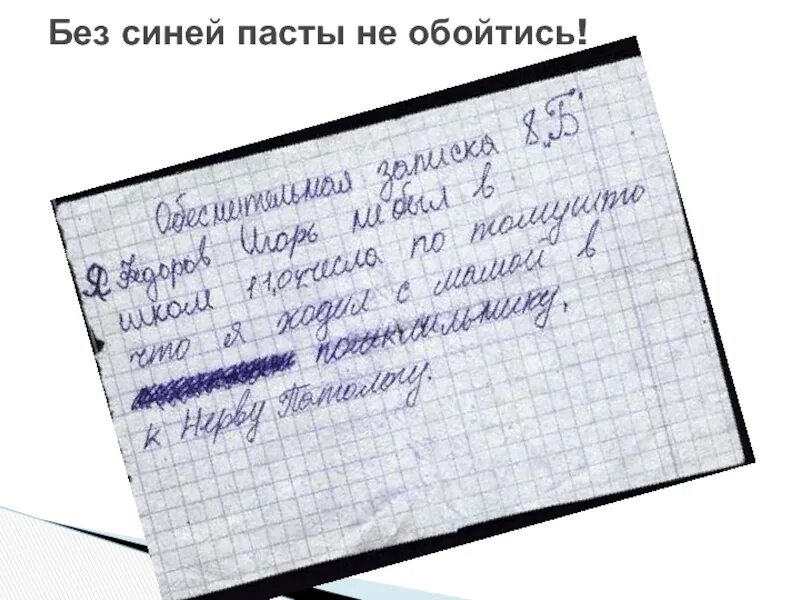 Без синей пасты не обойтись!
Обеснительная записка 8 „Б"
Я Федоров Игорь небыл в
школе 11,04 числа по томушто
что я ходил с мамой в
к Нерву Патологу.